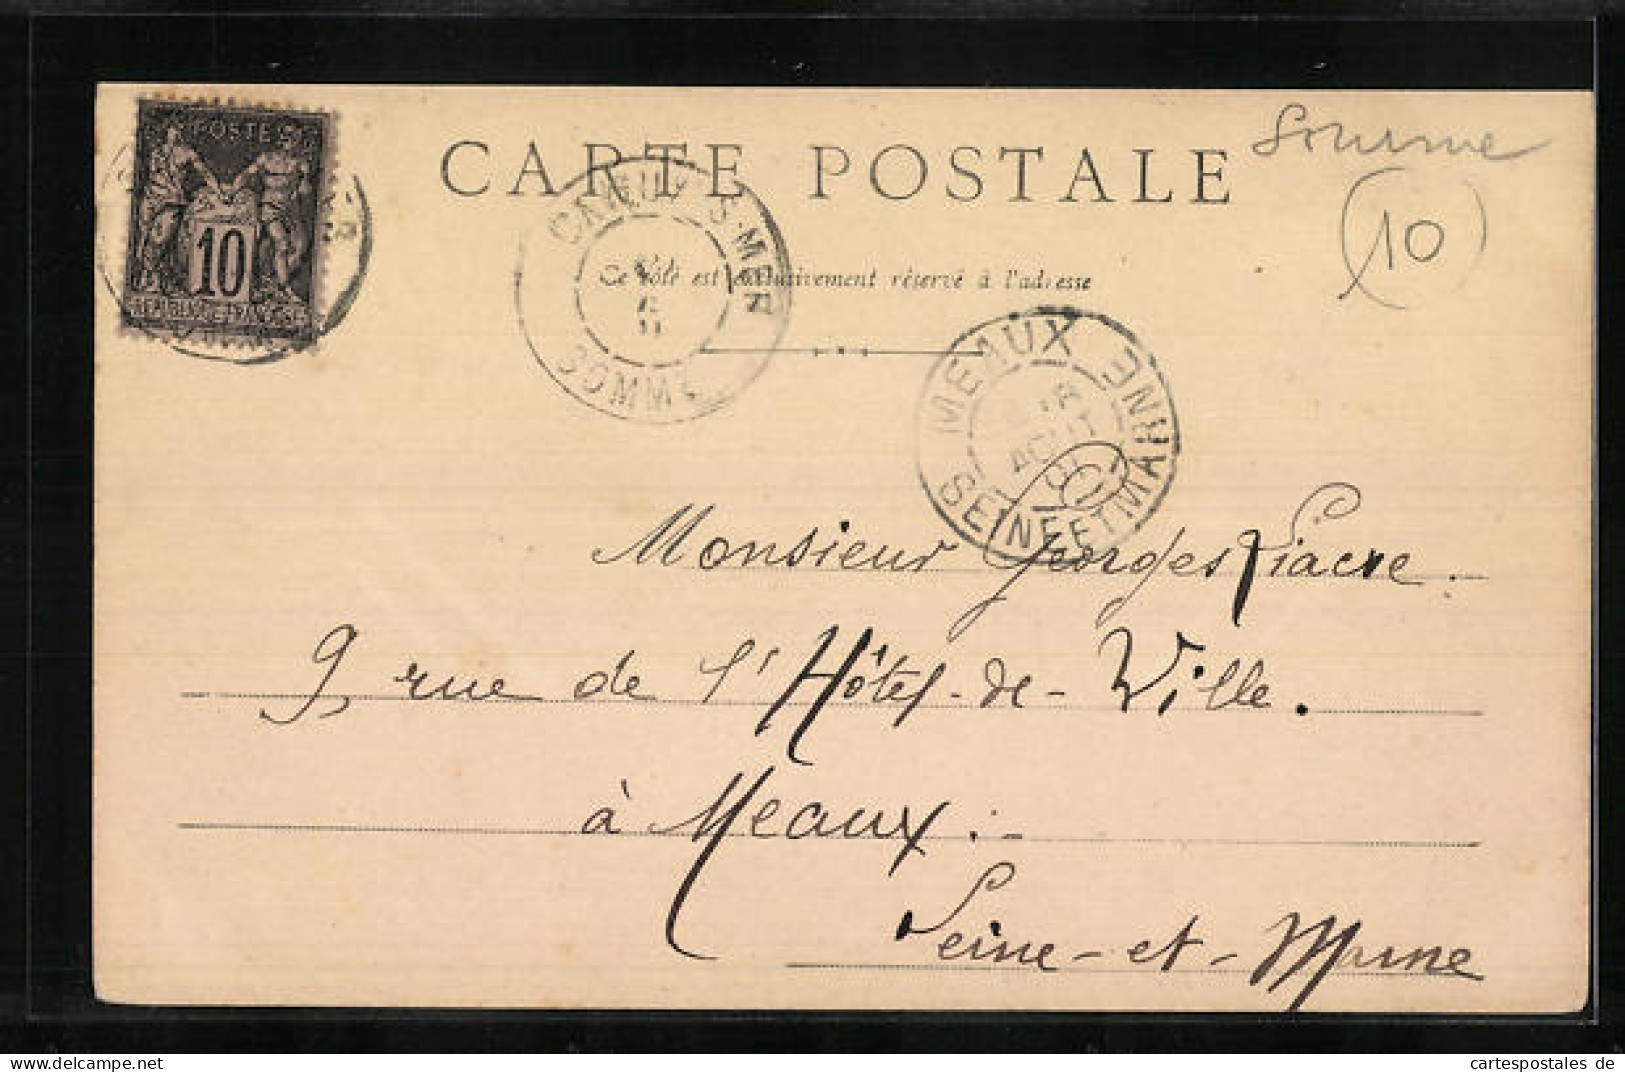 POSTE
10
REPUBLIQUE FRANÇAISE
CARTE POSTALE
Somme
10
CAYEUX-S-MER
SOMME
Ce côté est exclusivement réservé à l'adresse
MEAUX
18
AOUT
SEINE ET MARNE
Monsieur Georges Fiacre.
9, rue de l'Hôtel-de-Ville.
à Meaux.-
Seine-et-Marne
cartespostales de